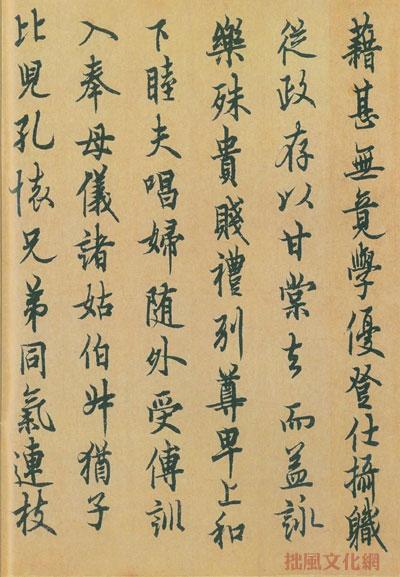 藉甚無竟學優登仕攝職
從政存以甘棠去而益詠
樂殊貴賤禮別尊卑上和
下睦夫唱婦随外受傅訓
入奉母儀諸姑伯叔猶子
比兒孔懐兄弟同氣連枝
拙風文化網